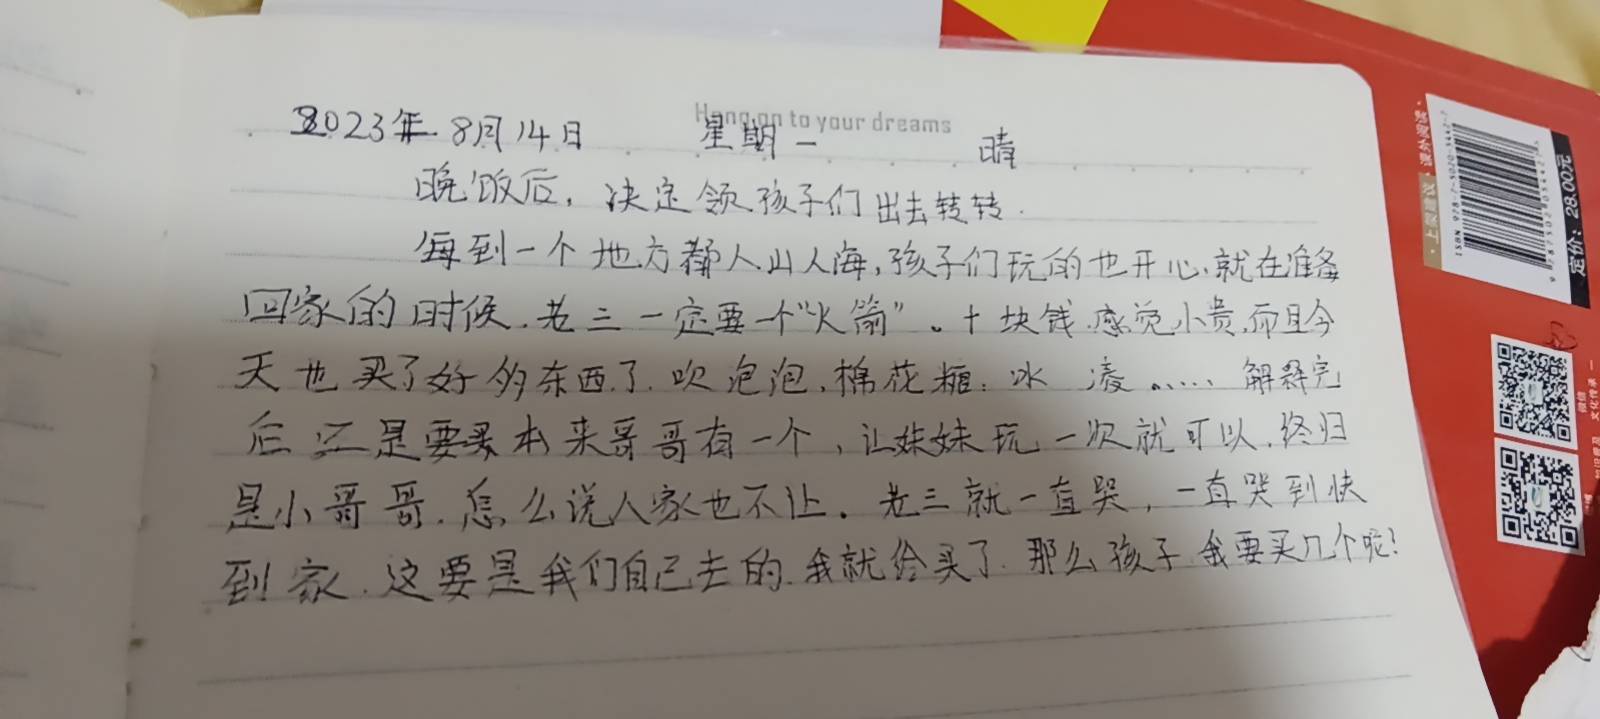 Hang on to your dreams
2023年8月14日 星期一 晴
晚饭后，决定领孩子们出去转转.
每到一个地方都人山人海，孩子们玩的也开心，就在准备
回家的时候，老三一定要一个“火箭”。十块钱，感觉小贵，而且今
天也买了好多东西了，吹泡泡，棉花糖，冰凌…… 解释完
后还是要买本来哥哥有一个，让妹妹玩一次就可以，终归
是小哥哥，怎么说人家也不让。老三就一直哭，一直哭到快
到家，这要是我们自己去的，我就给买了，那么孩子，我要买几个呢？
·上度建议·课外阅读·
ISBN 978-7-5020-5442-7
9 787502 054427
定价：28.00元
微信
文化传承